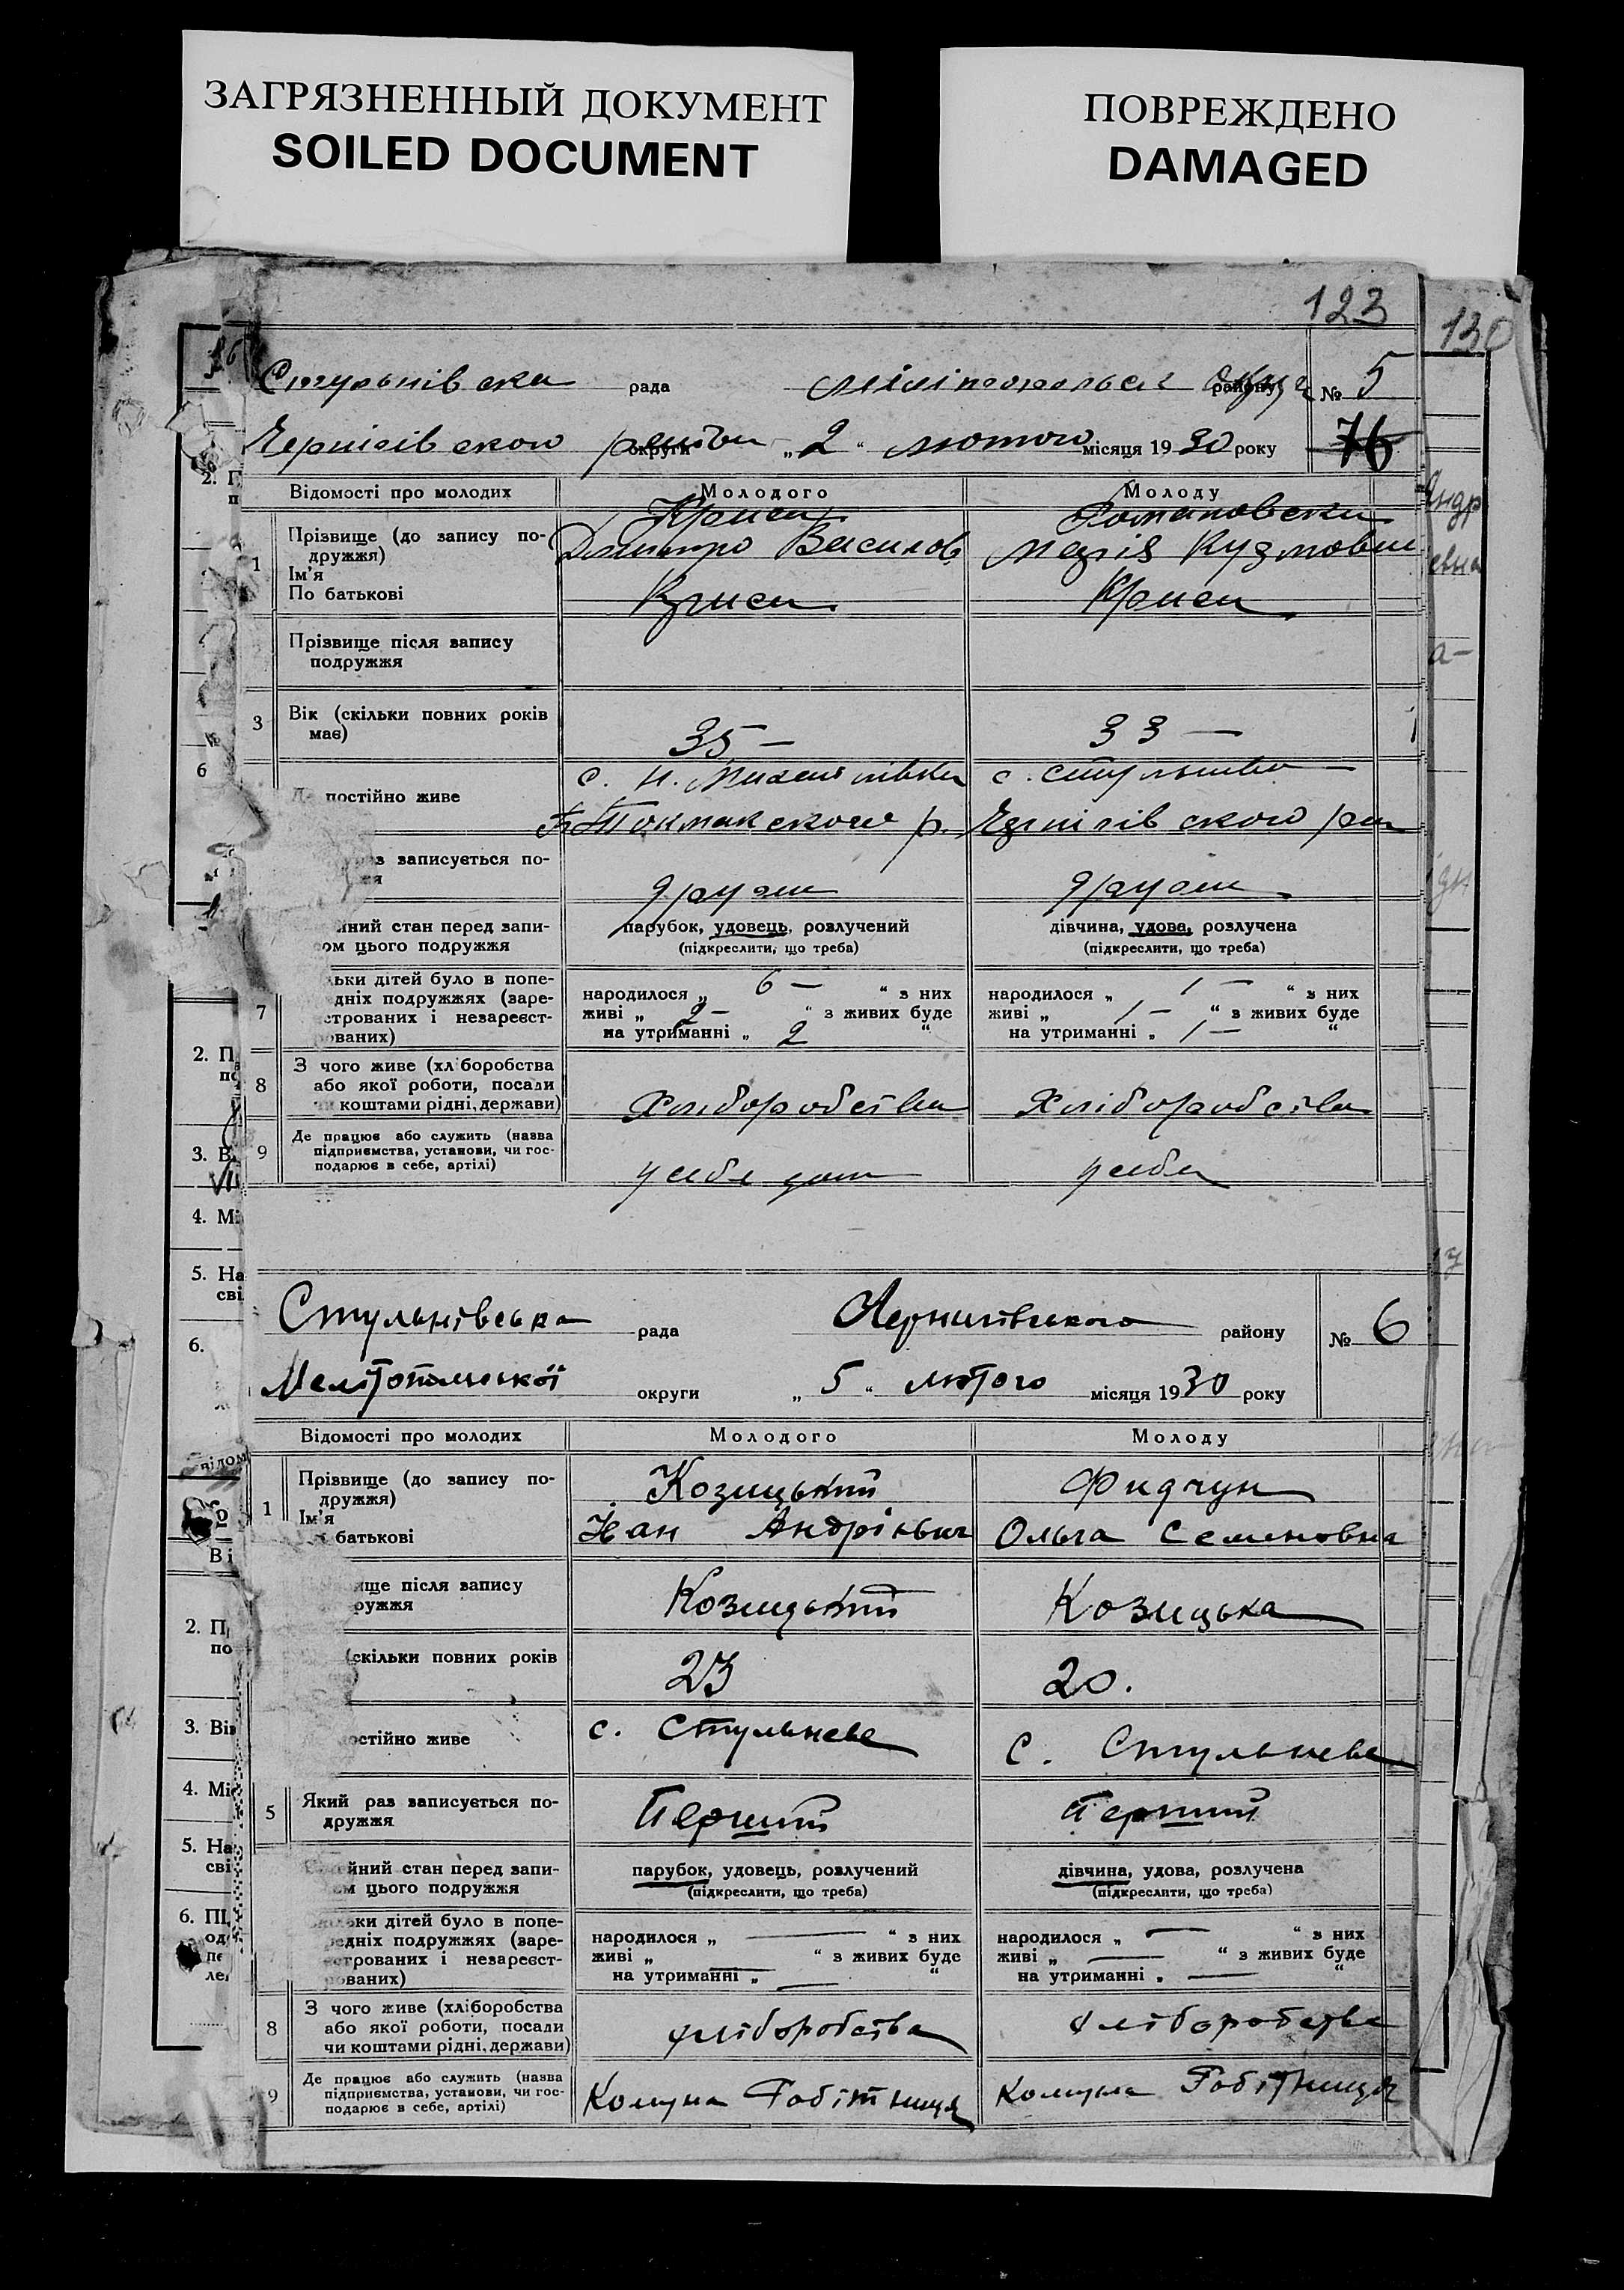 ЗАГРЯЗНЕННЫЙ ДОКУМЕНТ
SOILED DOCUMENT
ПОВРЕЖДЕНО
DAMAGED
123
130
Стульнівска рада району № 5
Чернігівского округи „ 2 “ лютого місяця 19 30 року 76
Відомості про молодих Молодого Молоду
1 Прізвище (до запису по-
дружжя)
Ім'я
По батькові
Криса Романовска
Дмитро Василов Марія Кузмовна
Криса Криса
Прізвище після запису
подружжя
3 Вік (скільки повних років
має) 35 — 33 —
постійно живе
с. Н. Михайлівка с. Стульнева
Б Токмакского р. Чернігівского рай
записується по-
други други
йний стан перед запи-
сом цього подружжя
парубок, удовець, розлучений дівчина, удова, розлучена
(підкреслити, що треба) (підкреслити, що треба)
7 льки дітей було в попе-
дніх подружжях (заре-
єстрованих і незареєст-
рованих)
народилося „ 6 — “ з них народилося „ 1 — “ з них
живі „ 2 — “ з живих буде живі „ 1 — “ з живих буде
на утриманні „ 2 “ на утриманні „ 1 — “
8 З чого живе (хліборобства
або якої роботи, посади
чи коштами рідні, держави)
Хліборобства Хліборобства
9 Де працює або служить (назва
підприємства, установи, чи гос-
подарює в себе, артілі)
у себе у себе
Стульнівська рада Чернигівського району № 6
Мелітопольської округи „ 5 “ лютого місяця 19 30 року
Відомості про молодих Молодого Молоду
1 Прізвище (до запису по-
дружжя)
Ім'я
батькові
Козицький Фидчун
Іван Андрієвич Ольга Семеновна
ище після запису
ружжя
Козицький Козицька
(скільки повних років
23 20.
остійно живе
с. Стульнева с. Стульнева
5 Який раз записується по-
дружжя
Перший Перший
йний стан перед запи-
м цього подружжя
парубок, удовець, розлучений дівчина, удова, розлучена
(підкреслити, що треба) (підкреслити, що треба)
ьки дітей було в попе-
редніх подружжях (заре-
єстрованих і незареєст-
рованих)
народилося „ — “ з них народилося „ — “ з них
живі „ — “ з живих буде живі „ — “ з живих буде
на утриманні „ — “ на утриманні „ — “
8 З чого живе (хліборобства
або якої роботи, посади
чи коштами рідні, держави)
хліборобства хліборобства
9 Де працює або служить (назва
підприємства, установи, чи гос-
подарює в себе, артілі)
Комуна Робітниця Комуна Робітниця